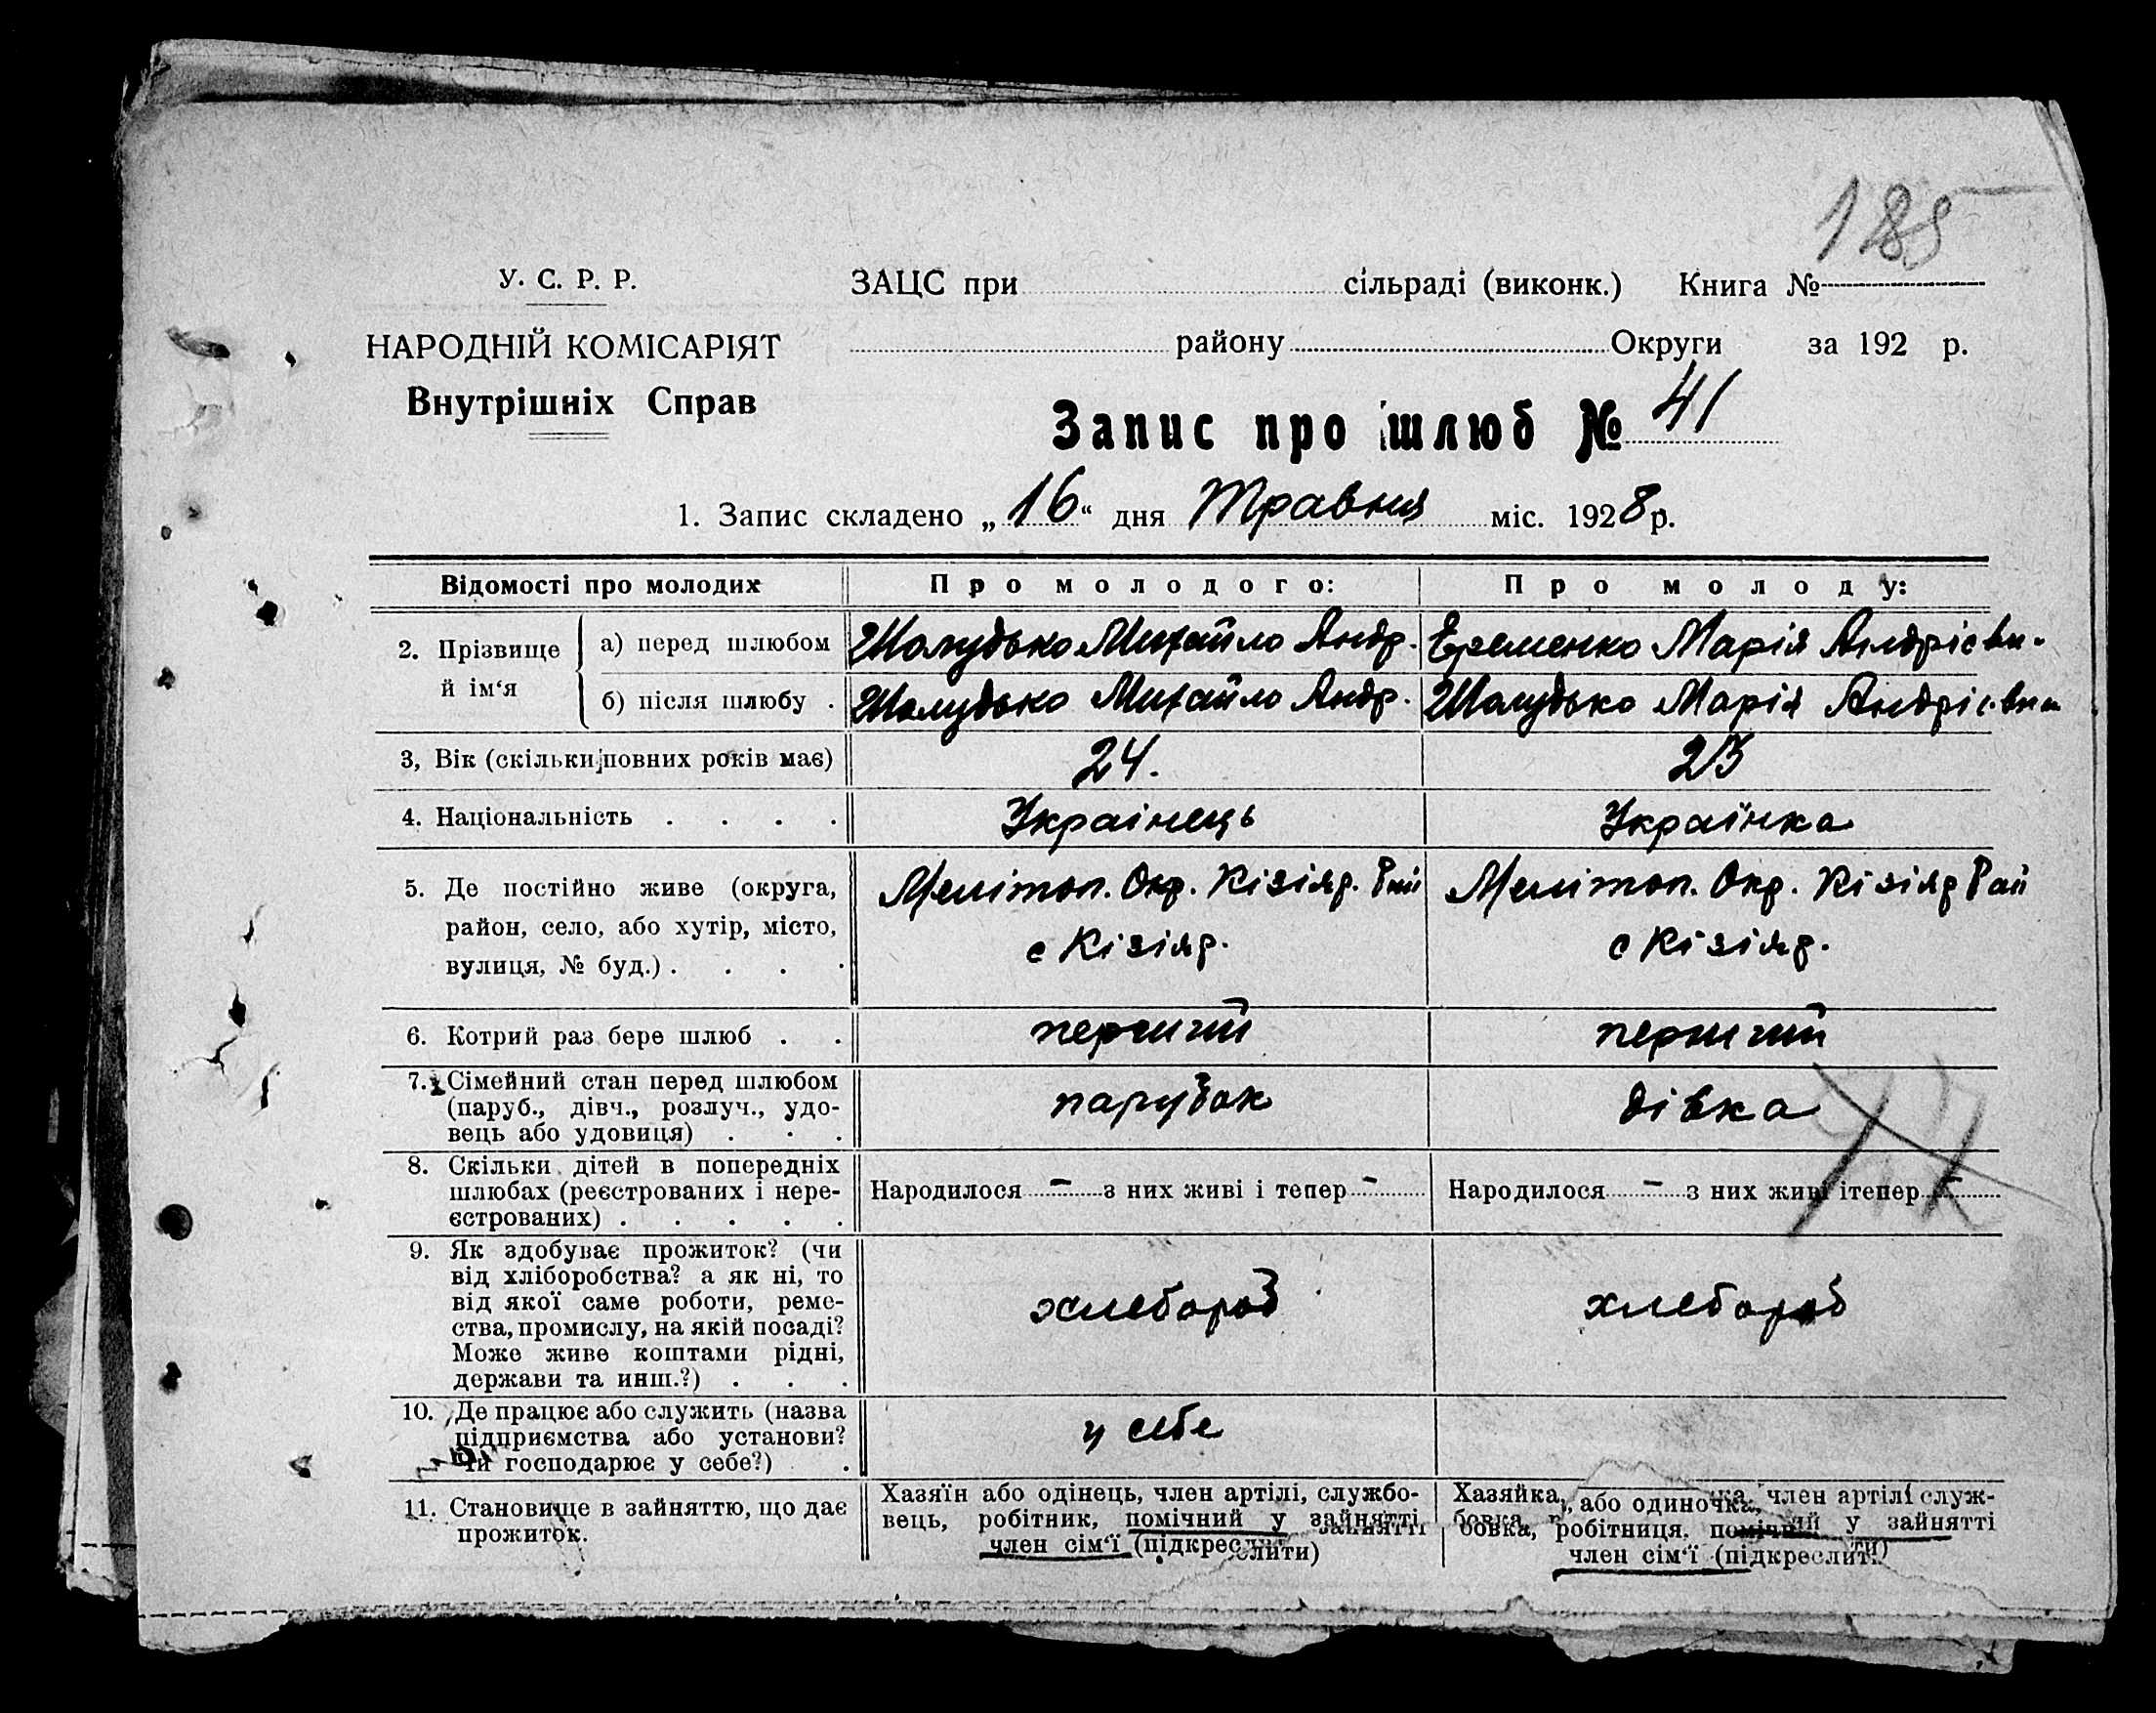 188
У. С. Р. Р.
ЗАЦС при сільраді (виконк.) Книга №
НАРОДНІЙ КОМІСАРІЯТ
району Округи за 192 р.
Внутрішніх Справ
Запис про шлюб № 41
1. Запис складено „16“ дня Травня міс. 1928 р.
Відомості про молодих Про молодого: Про молоду:
2. Прізвище й ім‘я
а) перед шлюбом Шолудько Михайло Андр. Еременко Марія Андрієвн.
б) після шлюбу . Шолудько Михайло Андр. Шолудько Марія Андрієвна
3, Вік (скільки повних років має) 24. 23
4. Національність . . . . Украінець Українка
5. Де постійно живе (округа, Мелітоп. Окр. Кізіяр. Рай Мелітоп. Окр. Кізіяр Рай
район, село, або хутір, місто, с Кізіяр. с Кізіяр.
вулиця, № буд.) . . . .
6. Котрий раз бере шлюб . . перший перший
7. Сімейний стан перед шлюбом
(паруб., дівч., розлуч., удо- парубок дівка
вець або удовиця) . . .
8. Скільки дітей в попередніх
шлюбах (реєстрованих і нере- Народилося — з них живі і тепер - Народилося — з них живі ітепер
єстрованих) . . . . .
9. Як здобуває прожиток? (чи
від хліборобства? а як ні, то
від якої саме роботи, реме- хлебороб хлебороб
ства, промислу, на якій посаді?
Може живе коштами рідні,
держави та инш.?) . . .
10. Де працює або служить (назва
підприємства або установи? у себе
Чи господарює у себе?) .
11. Становище в зайняттю, що дає Хазяїн або одінець, член артілі, службо- Хазяйка, або одиночка, член артілі служ-
прожиток. вець, робітник, помічний у зайнятті бовка, робітниця, помічний у зайнятті
член сім‘ї (підкреслити) член сім‘ї (підкреслити)